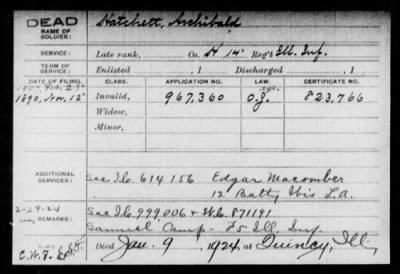 DEAD
NAME OF SOLDIER: Hatchett, Archibald
SERVICE: Late rank, Co. H 14" Reg't Ill. Inf.
TERM OF SERVICE: Enlisted , 1 Discharged , 1
DATE OF FILING. CLASS. APPLICATION NO. LAW. CERTIFICATE NO.
1907, Feb. 27"
1890, Nov. 12" Invalid, 967,360 O.J. 823,766
Widow,
Minor,
ADDITIONAL SERVICES: See I.O. 614156 Edgar Macomber
12 Batty Wis. L.A.
2-29-24 See I.O. 999,006 + W.C. 871191
REMARKS: Samuel Camp - F5 Ill. Inf.
C.W.F. Died Jan. 9, 1924, at Quincy, Ill.